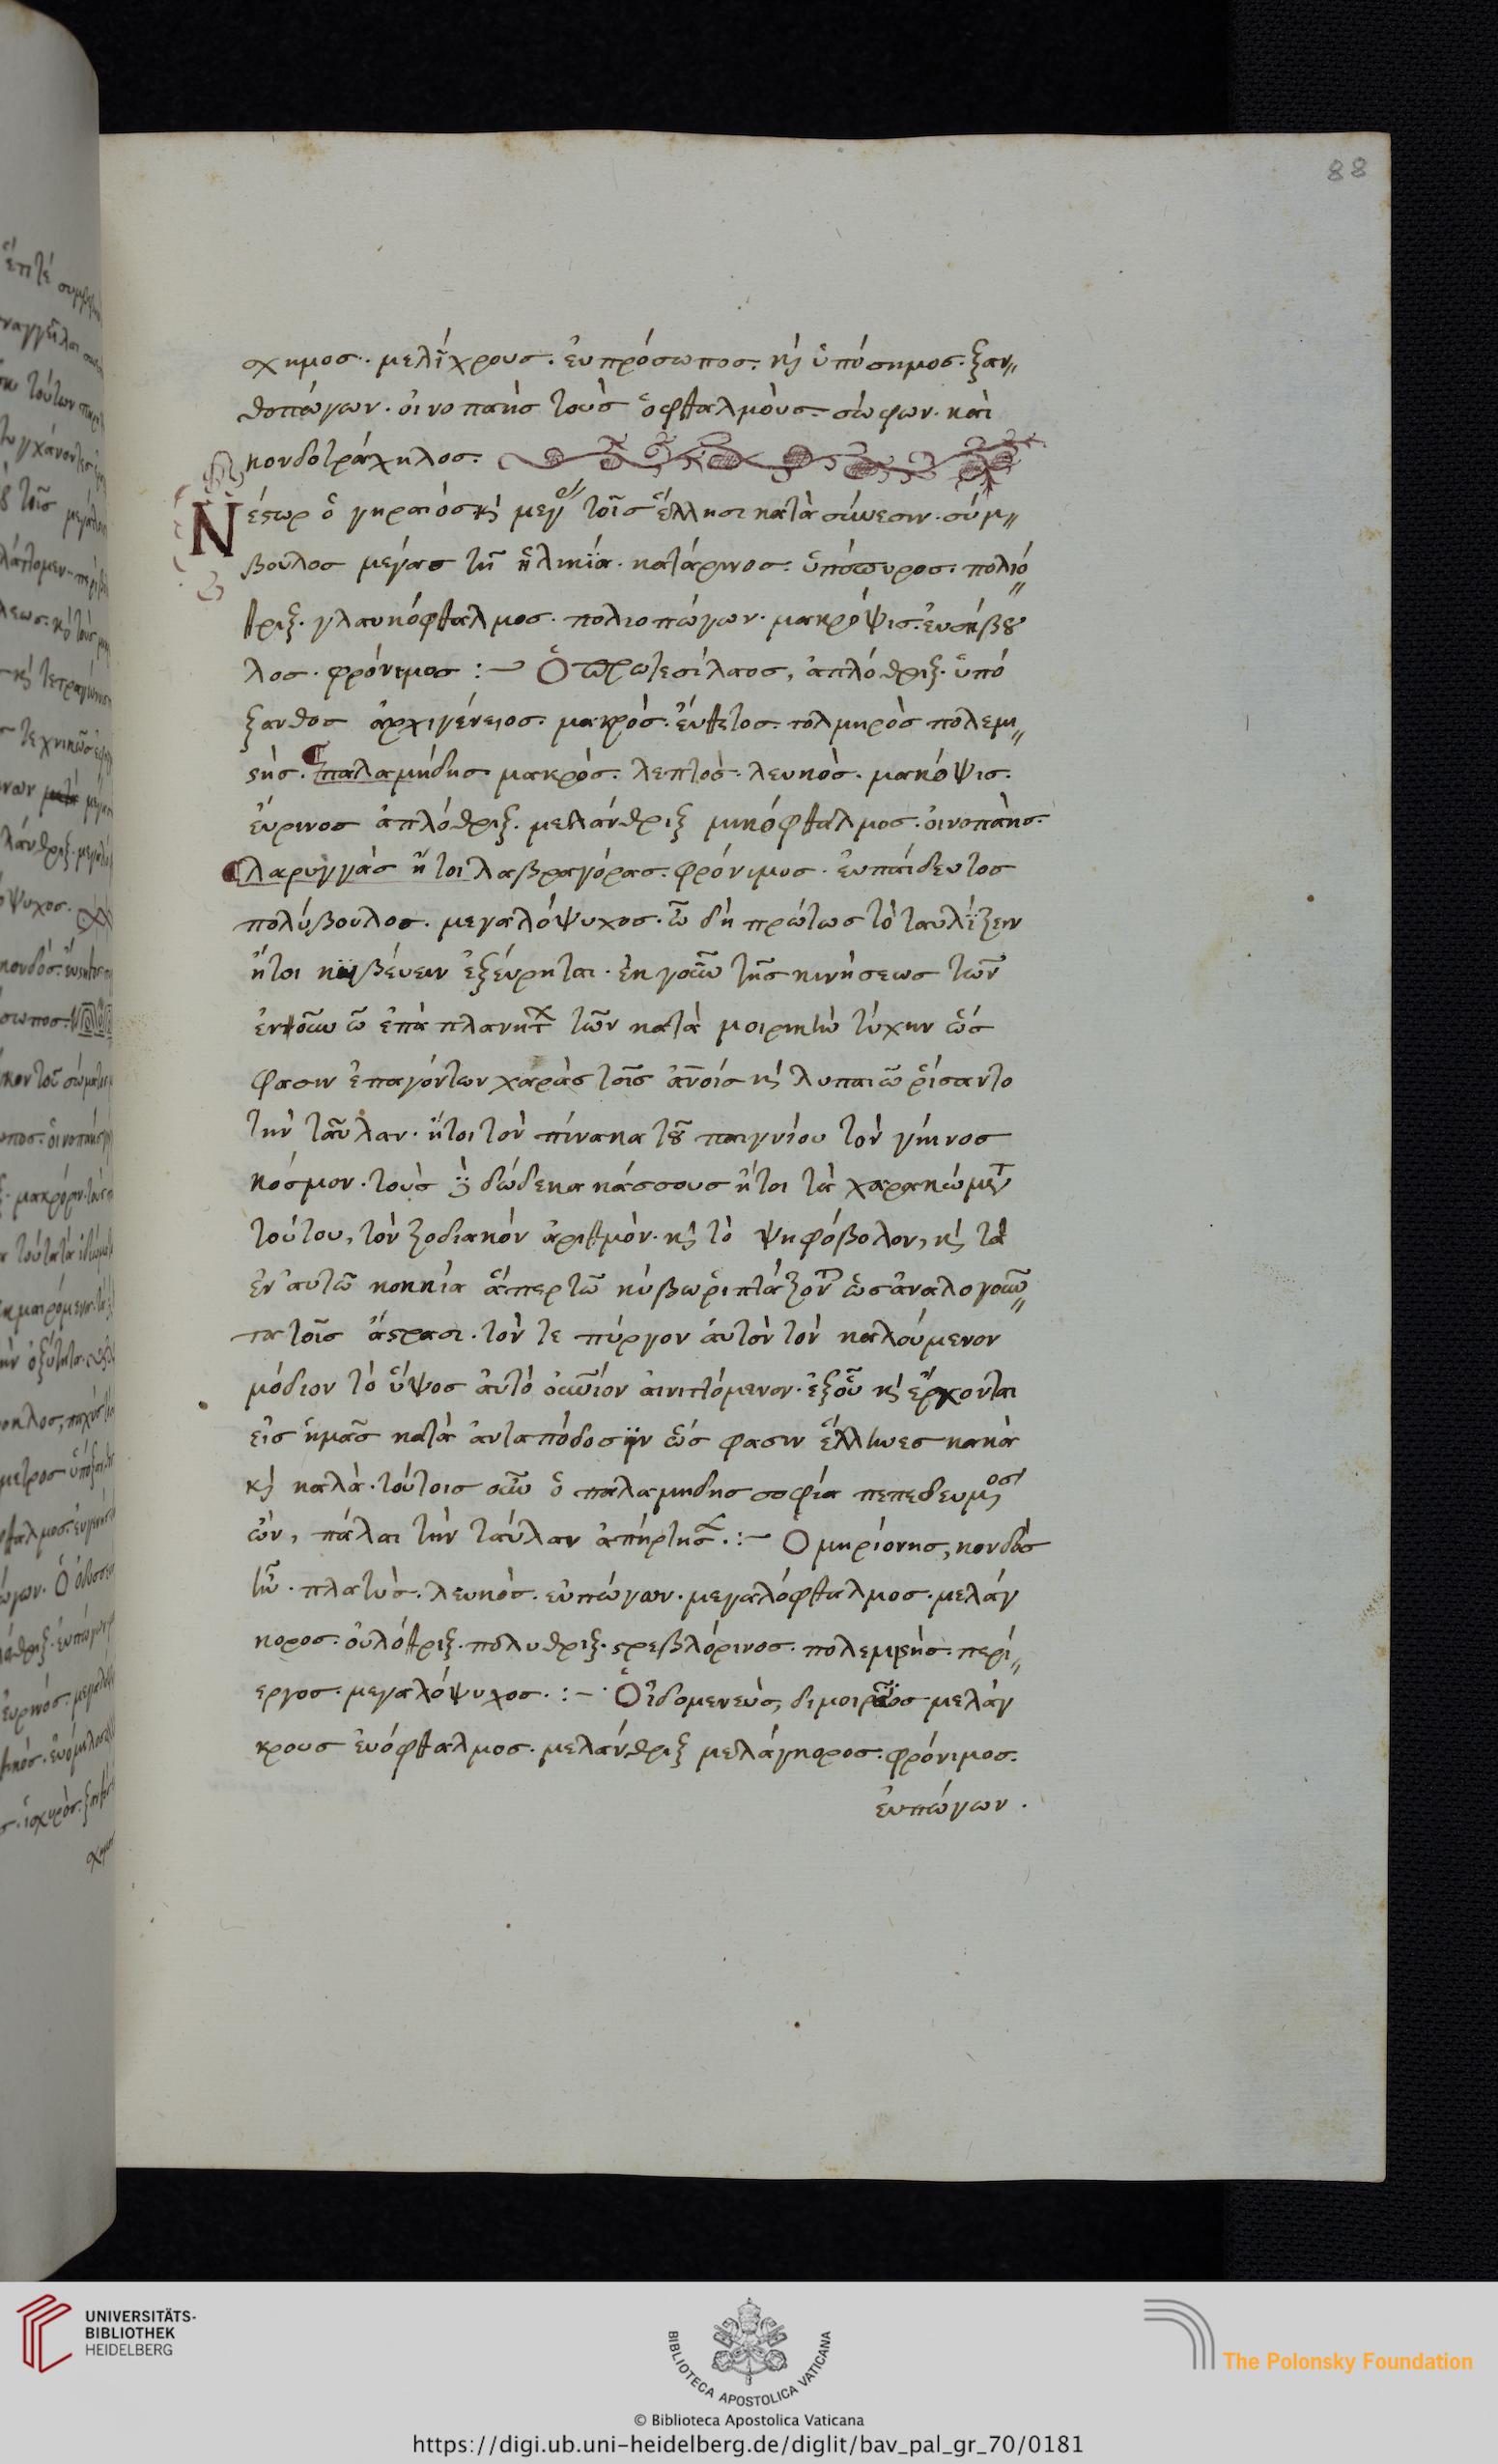 88
σχημος. μελίχρους. ἐυπρόσωπος. κὶ ὑπόσημος. ξαν
θοπώγων. οἰνοπαὴς τοὺς ὀφθαλμοὺς. σώφων. καὶ
κονδοτράχηλος.
Νέστωρ ὁ γηραιός κὶ μεγ τοῖς ἕλλησι κατὰ σύνεσιν. σύμ
βουλος μέγας τῆ ἡλικία. κατάρινος. ὑπόπυρος. πολιό
θριξ. γλαυκόφθαλμος. πολιοπώγων. μακρόψις. ἐυσήβου
λος. φρόνιμος :— Ὁ πρωτεσίλαος, ἁπλόθριξ. ὑπό
ξανθος ἀρχιγένειος. μακρὸς. ἔυθετος. τολμηρὸς πολεμι
στής. παλαμήδης μακρὸς. λεπτὸς. λευκὸς. μακόψις.
ἔυρινος ἁπλόθριξ. μελάνθριξ μικόφθαλμος. οἰνοπαὴς.
λαρυγγὰς ἤτοι λαβραγόρας. φρόνιμος. ἐυπαίδευτος
πολύβουλος. μεγαλόψυχος. ὦ δὴ πρώτως τὸ ταυλίζειν
ἤτοι κυβέυειν ἐξέυρηται. ἐκ γοῦν τῆς κινήσεως τῶν
ἑπτὰ πλανητ τῶν κατὰ μοιρικὴν τύχην ὥς
φασιν ἐπαγόντων χαρὰς τοῖς ἀνοίς κὶ λυπαι ὡρίσαντο
τὴν ταῦλαν. ἤτοι τὸν πίνακα τοῦ παιγνίου τὸν γήινος
κόσμον. τοὺς δώδεκα κάσσους ἤτοι τὰ χαρακώμα
τούτου, τὸν ζοδιακόν ἀριθμὸν. κὶ τὸ ψηφόβολον, κὶ τὰ
ἐν αυτῶ κοκκία ἅπερ τῶ κύβω ῥιπτάζον ὡς ἀναλογοῦν
τα τοῖς ἄστρασι. τὸν τε πύργον ἀυτὸν τὸν καλούμενον
μόδιον τὸ ὕψος ἀυτὸ οὐνίον ἀινιττόμενον. ἐξ οὗ κὶ ἔρχονται
εἰς ἡμᾶς κατὰ ἀνταπόδοσιν ὥς φασιν ἕλληνες κακὰ
κὶ καλὰ. τούτοις οὖν ὁ παλαμηδης σοφία πεπεδευμος
ὢν, πάλαι τὴν ταύλαν ἀπήρτησ. :— Ὁ μηριόνης, κονδὸς
ἦν. πλατὺς. λευκὸς. ευπώγων. μεγαλόφθαλμος. μελάγ
κορος. οὐλόθριξ. πολυθριξ. στρεβλόρινος. πολεμιστής. περί
εργος. μεγαλόψυχος. :— Ὁ ἰδομενεὺς, διμοιραῖος μελάγ
κρους ἐυόφθαλμος. μελάνθριξ μελάγκορος. φρόνιμος.
ἐυπώγων.
UNIVERSITÄTS-
BIBLIOTHEK
HEIDELBERG
BIBLIOTECA APOSTOLICA VATICANA
The Polonsky Foundation
© Biblioteca Apostolica Vaticana
https://digi.ub.uni-heidelberg.de/diglit/bav_pal_gr_70/0181